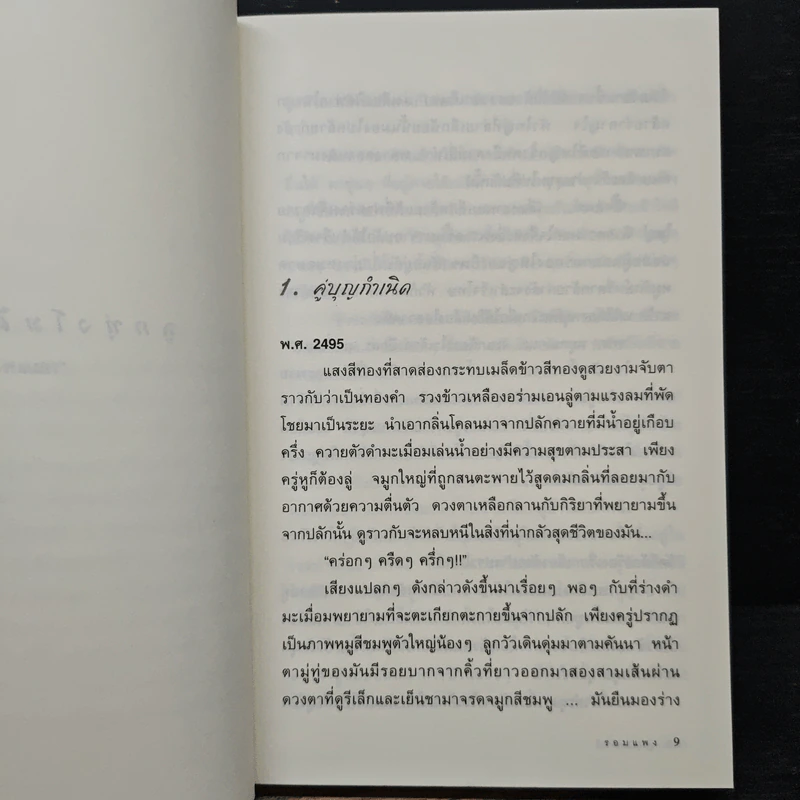 1. คู่บุญกำเนิด
พ.ศ. 2495
แสงสีทองที่สาดส่องกระทบเมล็ดข้าวสีทองดูสวยงามจับตา
ราวกับว่าเป็นทองคำ รวงข้าวเหลืองอร่ามเอนลู่ตามแรงลมที่พัด
โชยมาเป็นระยะ นำเอากลิ่นโคลนมาจากปลักควายที่มีน้ำอยู่เกือบ
ครึ่ง ควายตัวดำมะเมื่อมเล่นน้ำอย่างมีความสุขตามประสา เพียง
ครู่หูก็ต้องลู่ จมูกใหญ่ที่ถูกสนตะพายไว้สูดดมกลิ่นที่ลอยมากับ
อากาศด้วยความตื่นตัว ดวงตาเหลือกลานกับกิริยาที่พยายามขึ้น
จากปลักนั้น ดูราวกับจะหลบหนีในสิ่งที่น่ากลัวสุดชีวิตของมัน...
“คร่อกๆ ครืดๆ ครึ่กๆ!!”
เสียงแปลกๆ ดังกล่าวดังขึ้นมาเรื่อยๆ พอๆ กับที่ร่างดำ
มะเมื่อมพยายามที่จะตะเกียกตะกายขึ้นจากปลัก เพียงครู่ปรากฏ
เป็นภาพหมูสีชมพูตัวใหญ่น้องๆ ลูกวัวเดินดุ่มมาตามคันนา หน้า
ตามู่ทู่ของมันมีรอยบากจากคิ้วที่ยาวออกมาสองสามเส้นผ่าน
ดวงตาที่ดูรีเล็กและเย็นชามาจรดจมูกสีชมพู ... มันยืนมองร่าง
รอมแพง 9